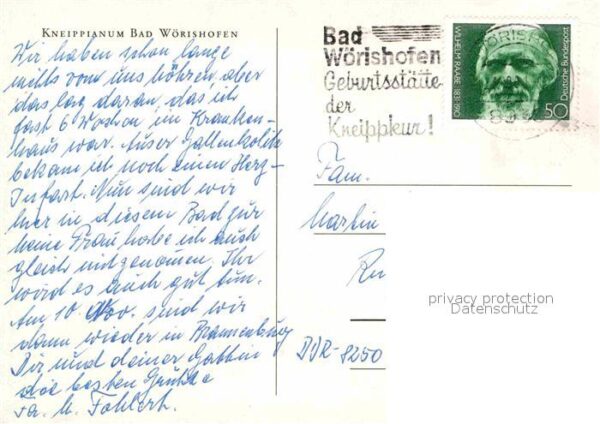 KNEIPPIANUM BAD WÖRISHOFEN
Wir haben schon lange
nichts von uns höhren, aber
das lag daran, das ich
fast 6 Wochen im Kranken-
haus war. Auser Gallenkolik
bekam ich noch einen Herz-
Infarkt. Nun sind wir
hier in diesem Bad zur
meine Frau habe ich auch
gleich mitgenommen, Ihr
wird es auch gut tun.
Am 10. Nov. sind wir
dann wieder in Brannenburg
Dir und deiner Gattin
die besten Grüße
Fa. H. Fohlert.
Bad
Wörishofen
Geburtsstätte
der
Kneippkur!
WILHELM RAABE 1831-1910
Deutsche Bundespost
50
Fam.
Martin
Ru
DDR-8250
privacy protection
Datenschutz